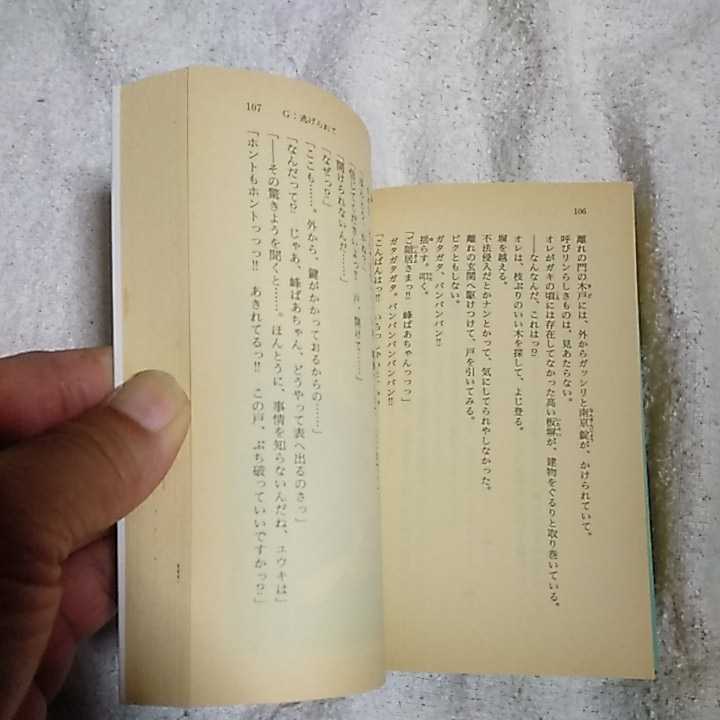 106
離れの門の木戸には、外からガッシリと南京錠が、かけられていて。
呼びリンらしきものは、見あたらない。
オレがガキの頃には存在してなかった高い板塀が、建物をぐるりと取り巻いている。
――なんなんだ、これはっ!?
オレは、枝ぶりのいい木を探して、よじ登る。
塀を越える。
不法侵入だとかナンとかって、気にしてられやしなかった。
離れの玄関へ駆けつけて、戸を引いてみる。
ビクともしない。
ガタガタ、バンバンバン!!
揺らす。叩く。
「ご隠居さまっ!! 峰ばあちゃんっっっ」
ガタガタガタ。バンバンバンバンバン!!
「こんばんはっ!!
107
G:逃げられて
「開けられないんだ……」
「なぜっ!?」
「ここも……。外から、鍵がかかっておるからの……」
「なんだって!? じゃあ、峰ばあちゃん、どうやって表へ出るのさっ」
「――その驚きようを聞くと……。ほんとうに、事情を知らないんだね、ユウキは」
「ホントもホントっっっ!! あきれてるっ!! この戸、ぶち破っていいですかっ?」